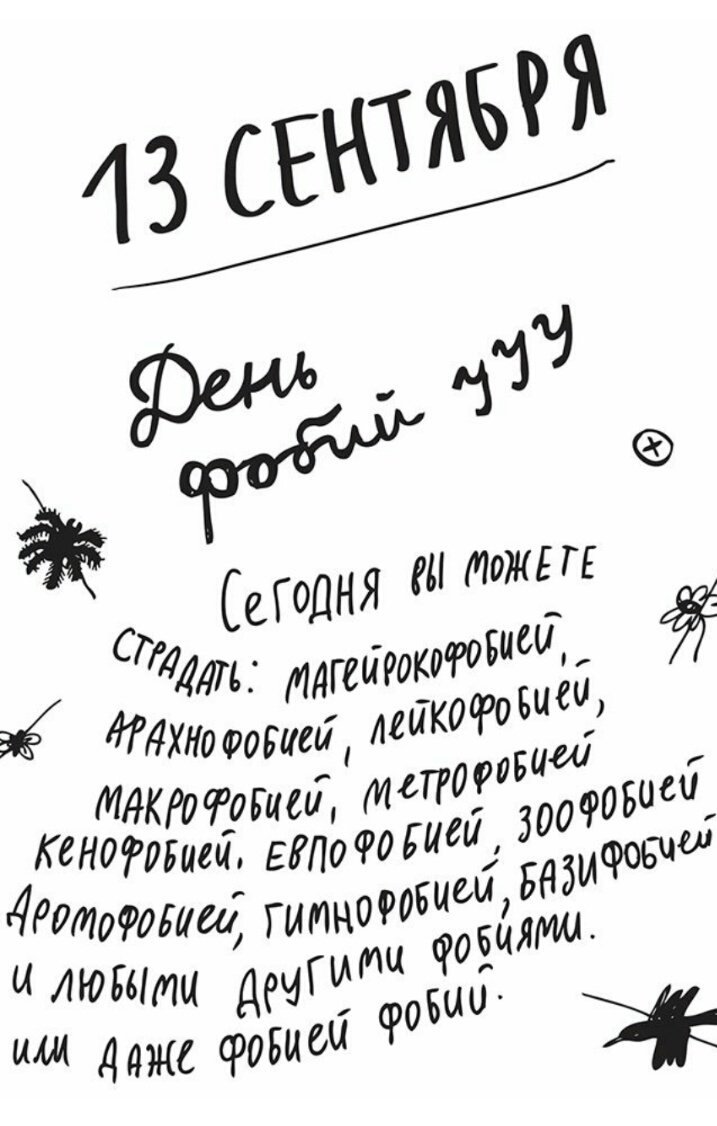 13 СЕНТЯБРЯ
День
фобий ууу
Сегодня вы можете
страдать: магейрокофобией,
арахнофобией, лейкофобией,
макрофобией, метрофобией
кенофобией. евпофобией, зоофобией
Дромофобией, гимнофобией, базифобией
и любыми другими фобиями.
или даже фобией фобий.